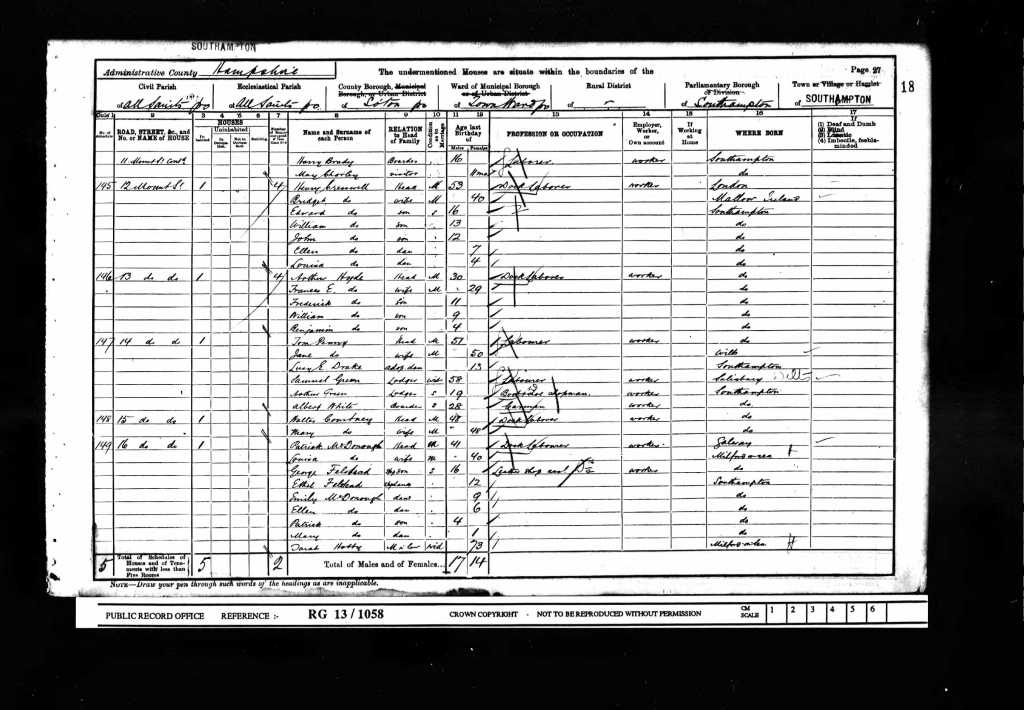 SOUTHAMPTON
Administrative County Hampshire The undermentioned Houses are situate within the boundaries of the Page 27
18
Civil Parish Ecclesiastical Parish County Borough, Municipal Borough, or Urban District Ward of Municipal Borough or of Urban District Rural District Parliamentary Borough or Division Town or Village or Hamlet
of All Saints of All Saints of of Town Ward of of Southampton of SOUTHAMPTON
No. of Schedule ROAD, STREET, &c., and No. or NAME of HOUSE HOUSES Uninhabited Name and Surname of each Person RELATION to Head of Family Condition as to Marriage Age last Birthday of Males Females PROFESSION OR OCCUPATION Employer, Worker, or Own account If Working at Home WHERE BORN (1) Deaf and Dumb (2) Blind (3) Lunatic (4) Imbecile, feeble-minded
11 Mount St Harry Brady Boarder 16 Labourer worker Southampton
May Chorley visitor do
145 12 Mount St 1 4 Henry Head M 53 Dock Labourer worker London
Bridget do wife M 40 Mallow Ireland
Edward do son S 16 Southampton
William do son 13 do
John do son 12 do
Ellen do dau 7 do
Louisa do dau 4 do
146 13 do do 1 4 Arthur Head M 30 Dock Labourer worker do
Frances E. do wife M 29 do
Frederick do Son 11 do
William do son 9 do
Benjamin do son 4 do
147 14 do do 1 Tom Head M 51 Labourer worker do
Jane do wife M 50 Wilts
Lucy E. Drake adop. dau 13 Southampton
Samuel Green Lodger wid 58 Labourer worker Salisbury Wilts
Arthur Green Lodger S 19 worker Southampton
Albert White Boarder S 28 worker do
148 15 do do 1 Walter Courtney Head M 48 Dock Labourer worker do
Mary do wife M 48 do
149 16 do do 1 Patrick McDonough Head M 41 Dock Labourer worker Galway
Louisa do wife M 40
George Felstead son S 16 worker do
Ethel Felstead 12 Southampton
Emily McDonough dau 9 do
Ellen do dau 6 do
Patrick do son 4 do
Mary do dau 1 do
Sarah Wid 73
5 Total of Schedules of Houses and of Tenements with less than Five Rooms 5 2 Total of Males and of Females... 17 14
NOTE—Draw your pen through such words of the headings as are inapplicable.
PUBLIC RECORD OFFICE REFERENCE :- RG 13 / 1058 CROWN COPYRIGHT - NOT TO BE REPRODUCED WITHOUT PERMISSION CM SCALE 1 2 3 4 5 6